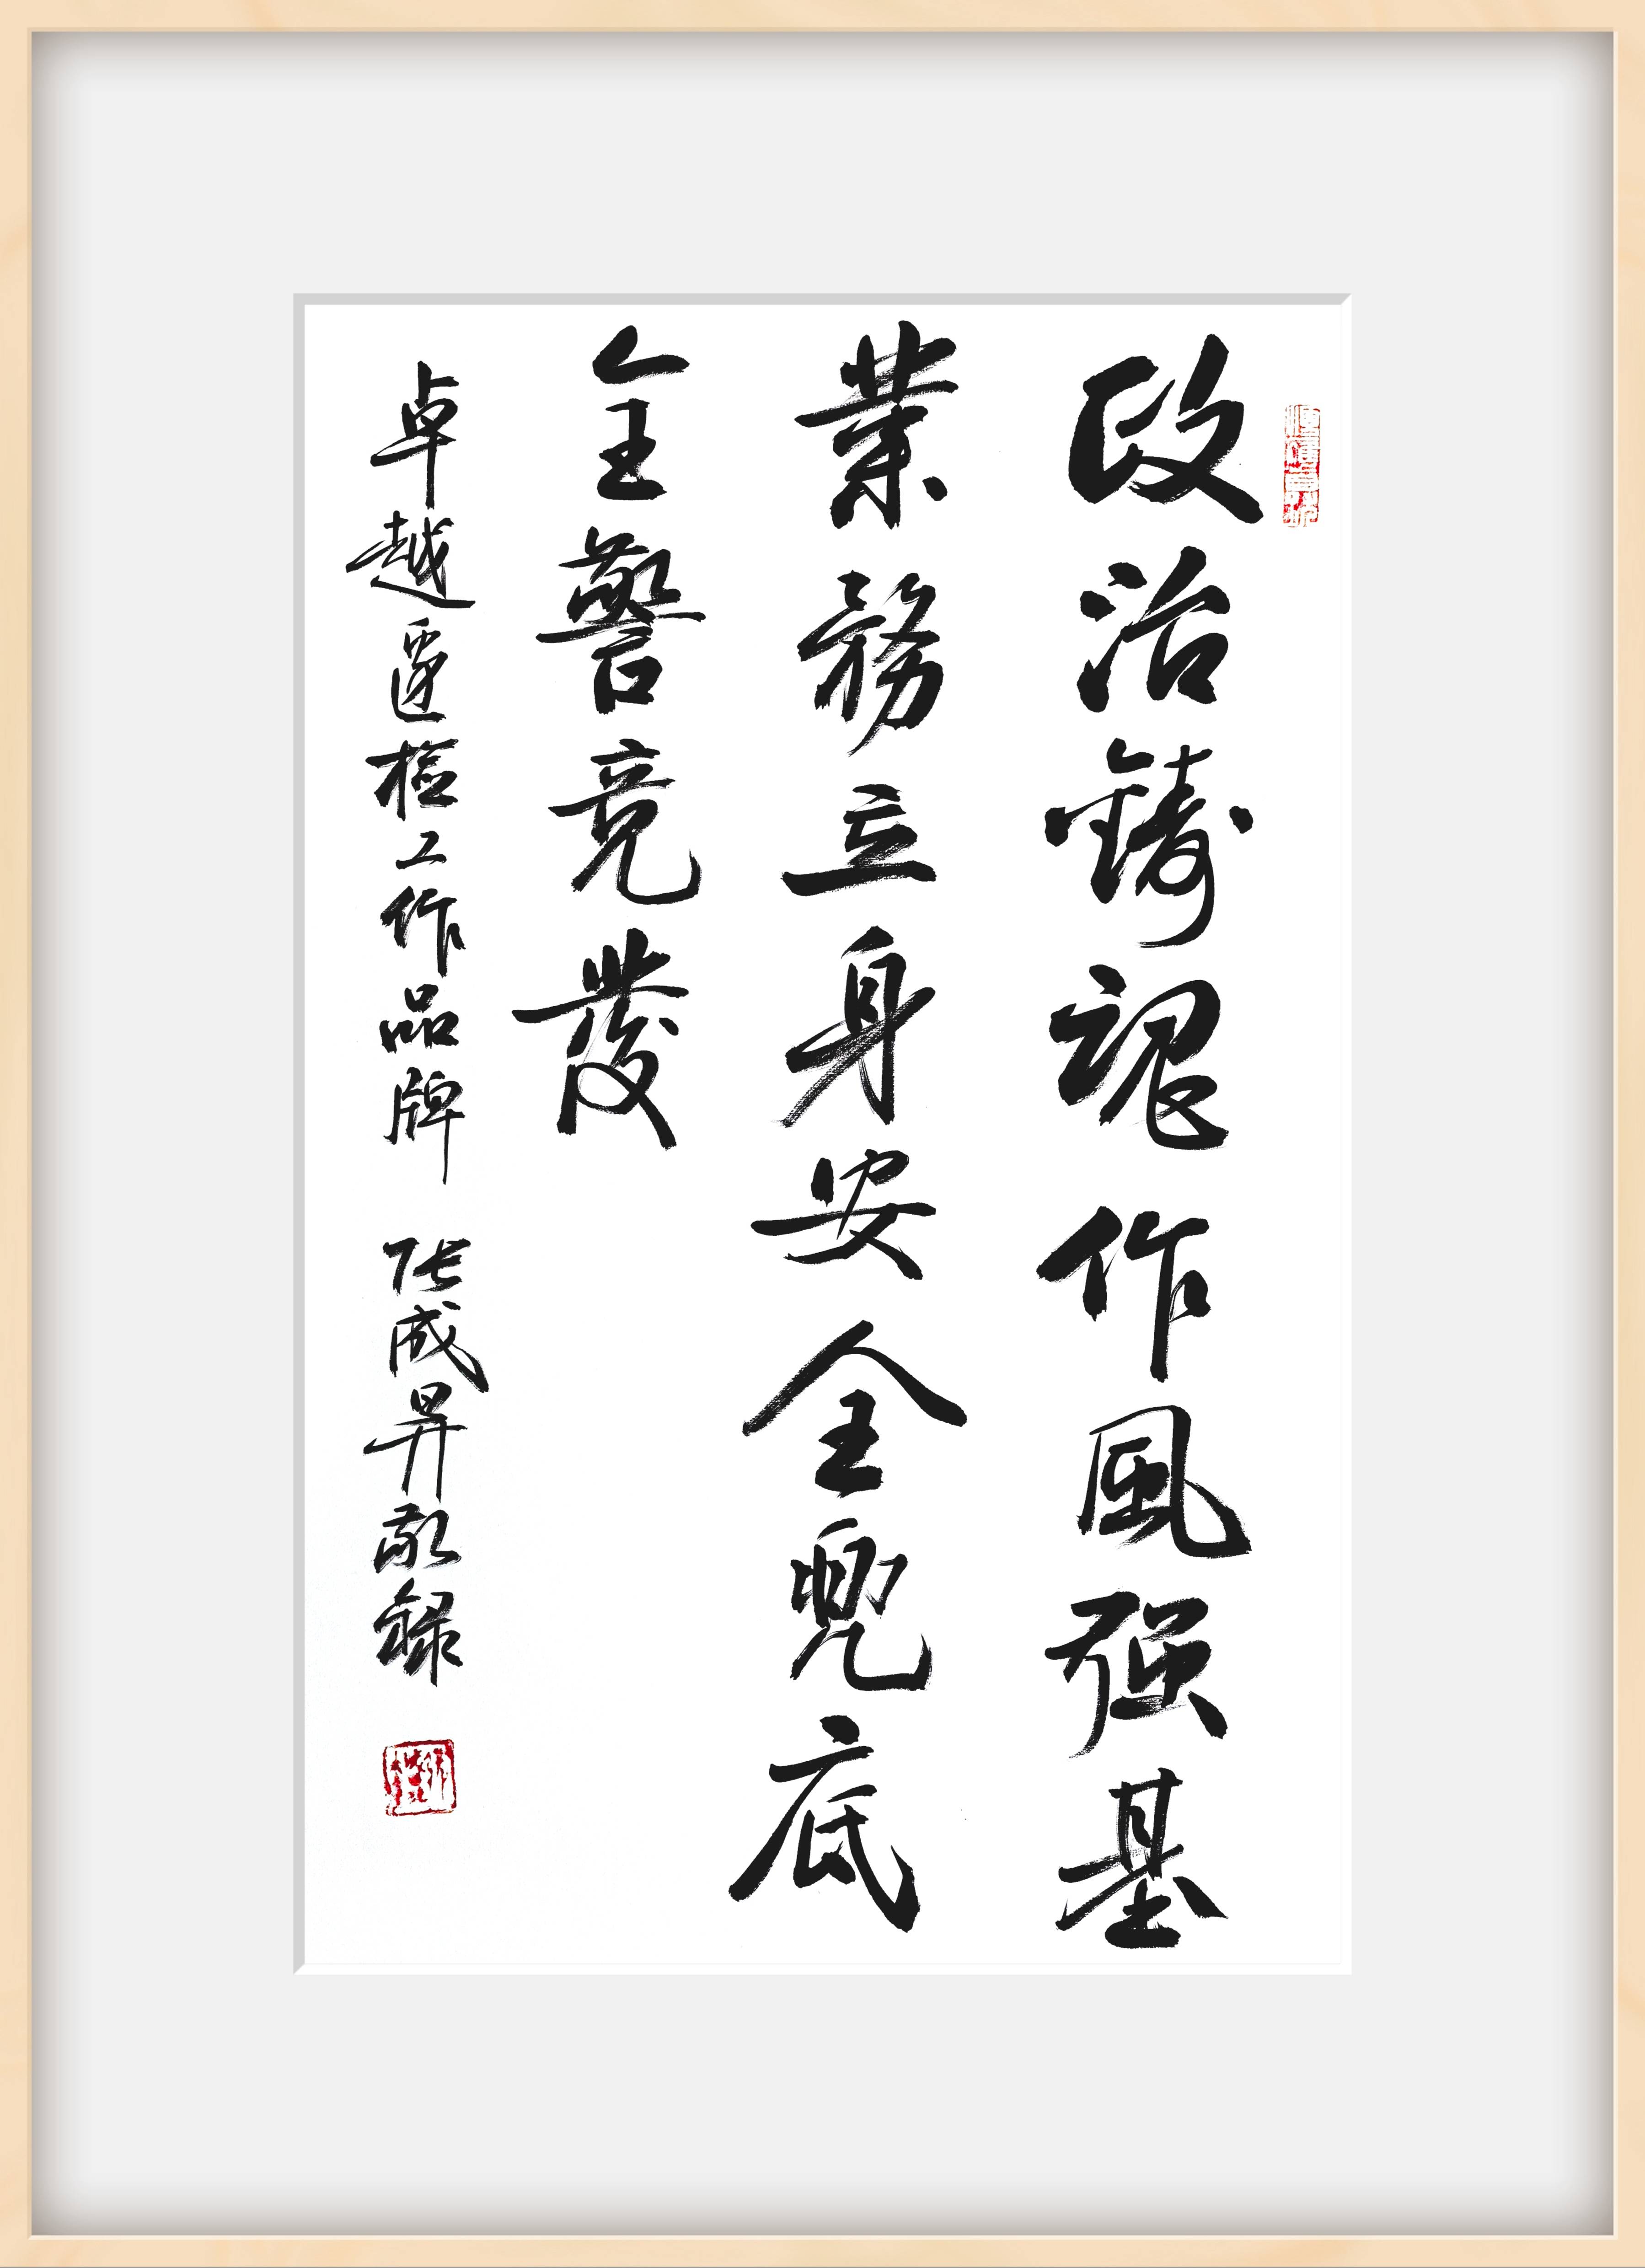 政治鑄魂作風强基
業務立身安全兜底
全警竞發
卓越邊檢工作品牌 张成昇敬録